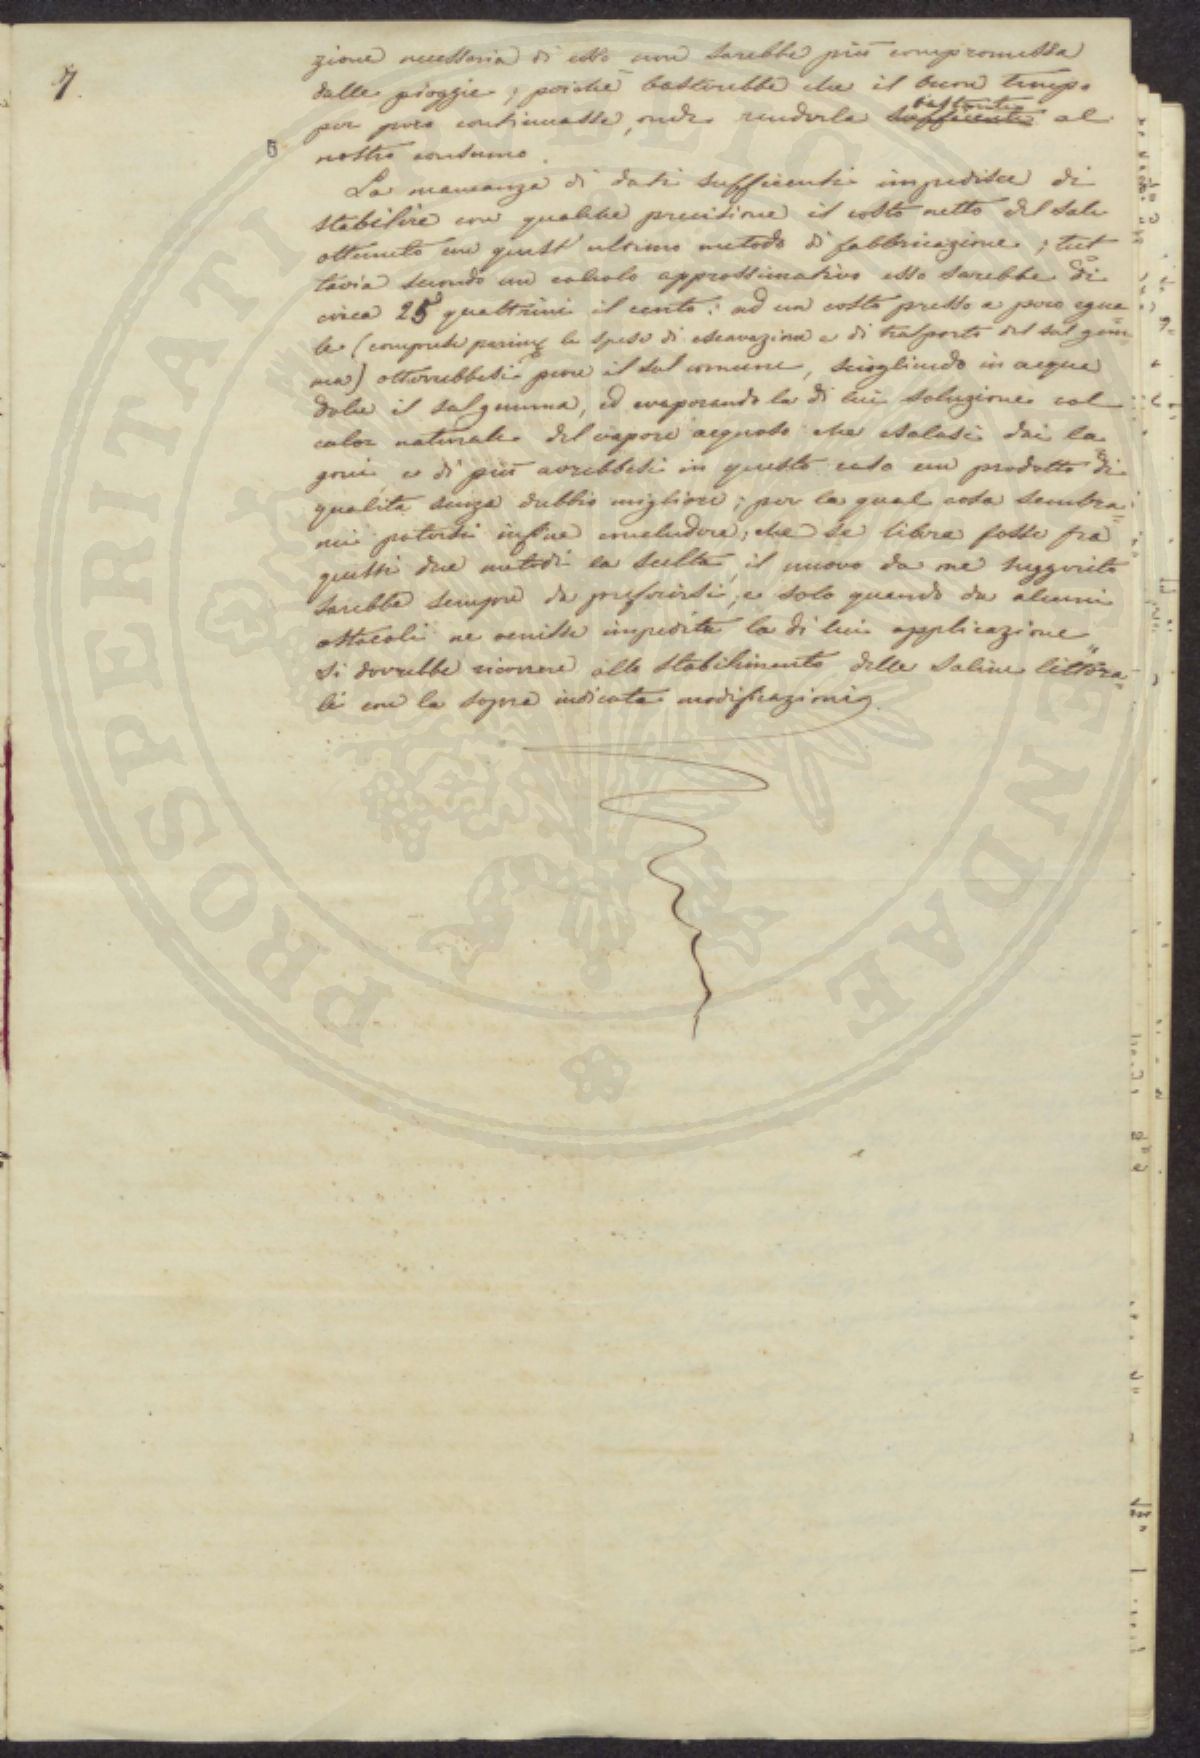 7.
zione necessaria di esso non sarebbe più compromessa
dalle pioggie; poichè basterebbe che il buon tempo
per poco continuasse, onde renderla sufficiente bastante al
nostro consumo.
La mancanza di dati sufficienti impedisce di
stabilire con qualche precisione il costo netto del sale
ottenuto con quest'ultimo metodo di fabbricazione; tut
tavia secondo un calcolo approssimativo esso sarebbe di
circa 25 quattrini il cento: ad un costo presso a poco egua=
le (comprese le spese di escavazione e di trasporto del sal gem=
ma) otterrebbesi pure il sal comune, sciogliendo in acqua
dolce il salgemma, ed evaporando la di lui soluzione col
calor naturale del vapore acquoso che esalasi dai la
goni, e di più avrebbesi in questo caso un prodotto di
qualità senza dubbio migliore; per la qual cosa sembra=
mi potersi infine concludere, che se libera fosse fra
questi due metodi la scelta, il nuovo da me suggerito
sarebbe sempre da preferirsi, e solo quando da alcuni
ostacoli ne venisse impedita la di lui applicazione
si dovrebbe ricorrere allo stabilimento delle saline littora=
li con la sopra indicata modificazione.
PROSPERITATI PUBLICAE AUGENDAE